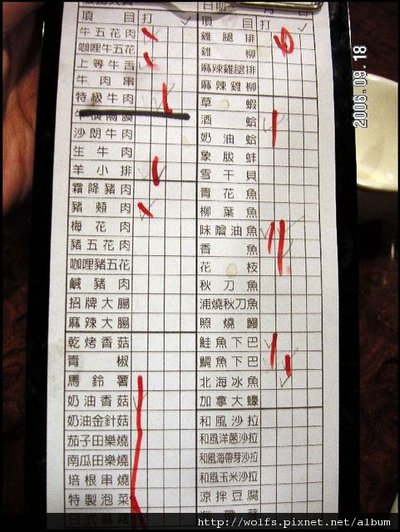 項目 打 ✓
牛五花肉
咖哩牛五花
上等牛舌
牛肉串
特級牛肉
沙朗牛肉
生牛肉
羊小排
霜降豬肉
豬頰肉
梅花肉
豬五花肉
咖哩豬五花
鹹豬肉
招牌大腸
麻辣大腸
乾烤香菇
青椒
馬鈴薯
奶油香菇
奶油金針菇
茄子田樂燒
南瓜田樂燒
培根串燒
特製泡菜
日期
項目 打 ✓
雞腿排
雞柳
麻辣雞腿排
麻辣雞柳
草蝦
酒蛤
奶油蛤
象拔蚌
雪干貝
青花魚
柳葉魚
味噌油魚
香魚
花枝
秋刀魚
蒲燒秋刀魚
照燒鰻
鮭魚下巴
鯛魚下巴
北海冰魚
加拿大蠔
和風沙拉
和風洋蔥沙拉
和風海帶芽沙拉
和風玉米沙拉
涼拌豆腐
2006.09.18
http://wolfs.pixnet.net/album